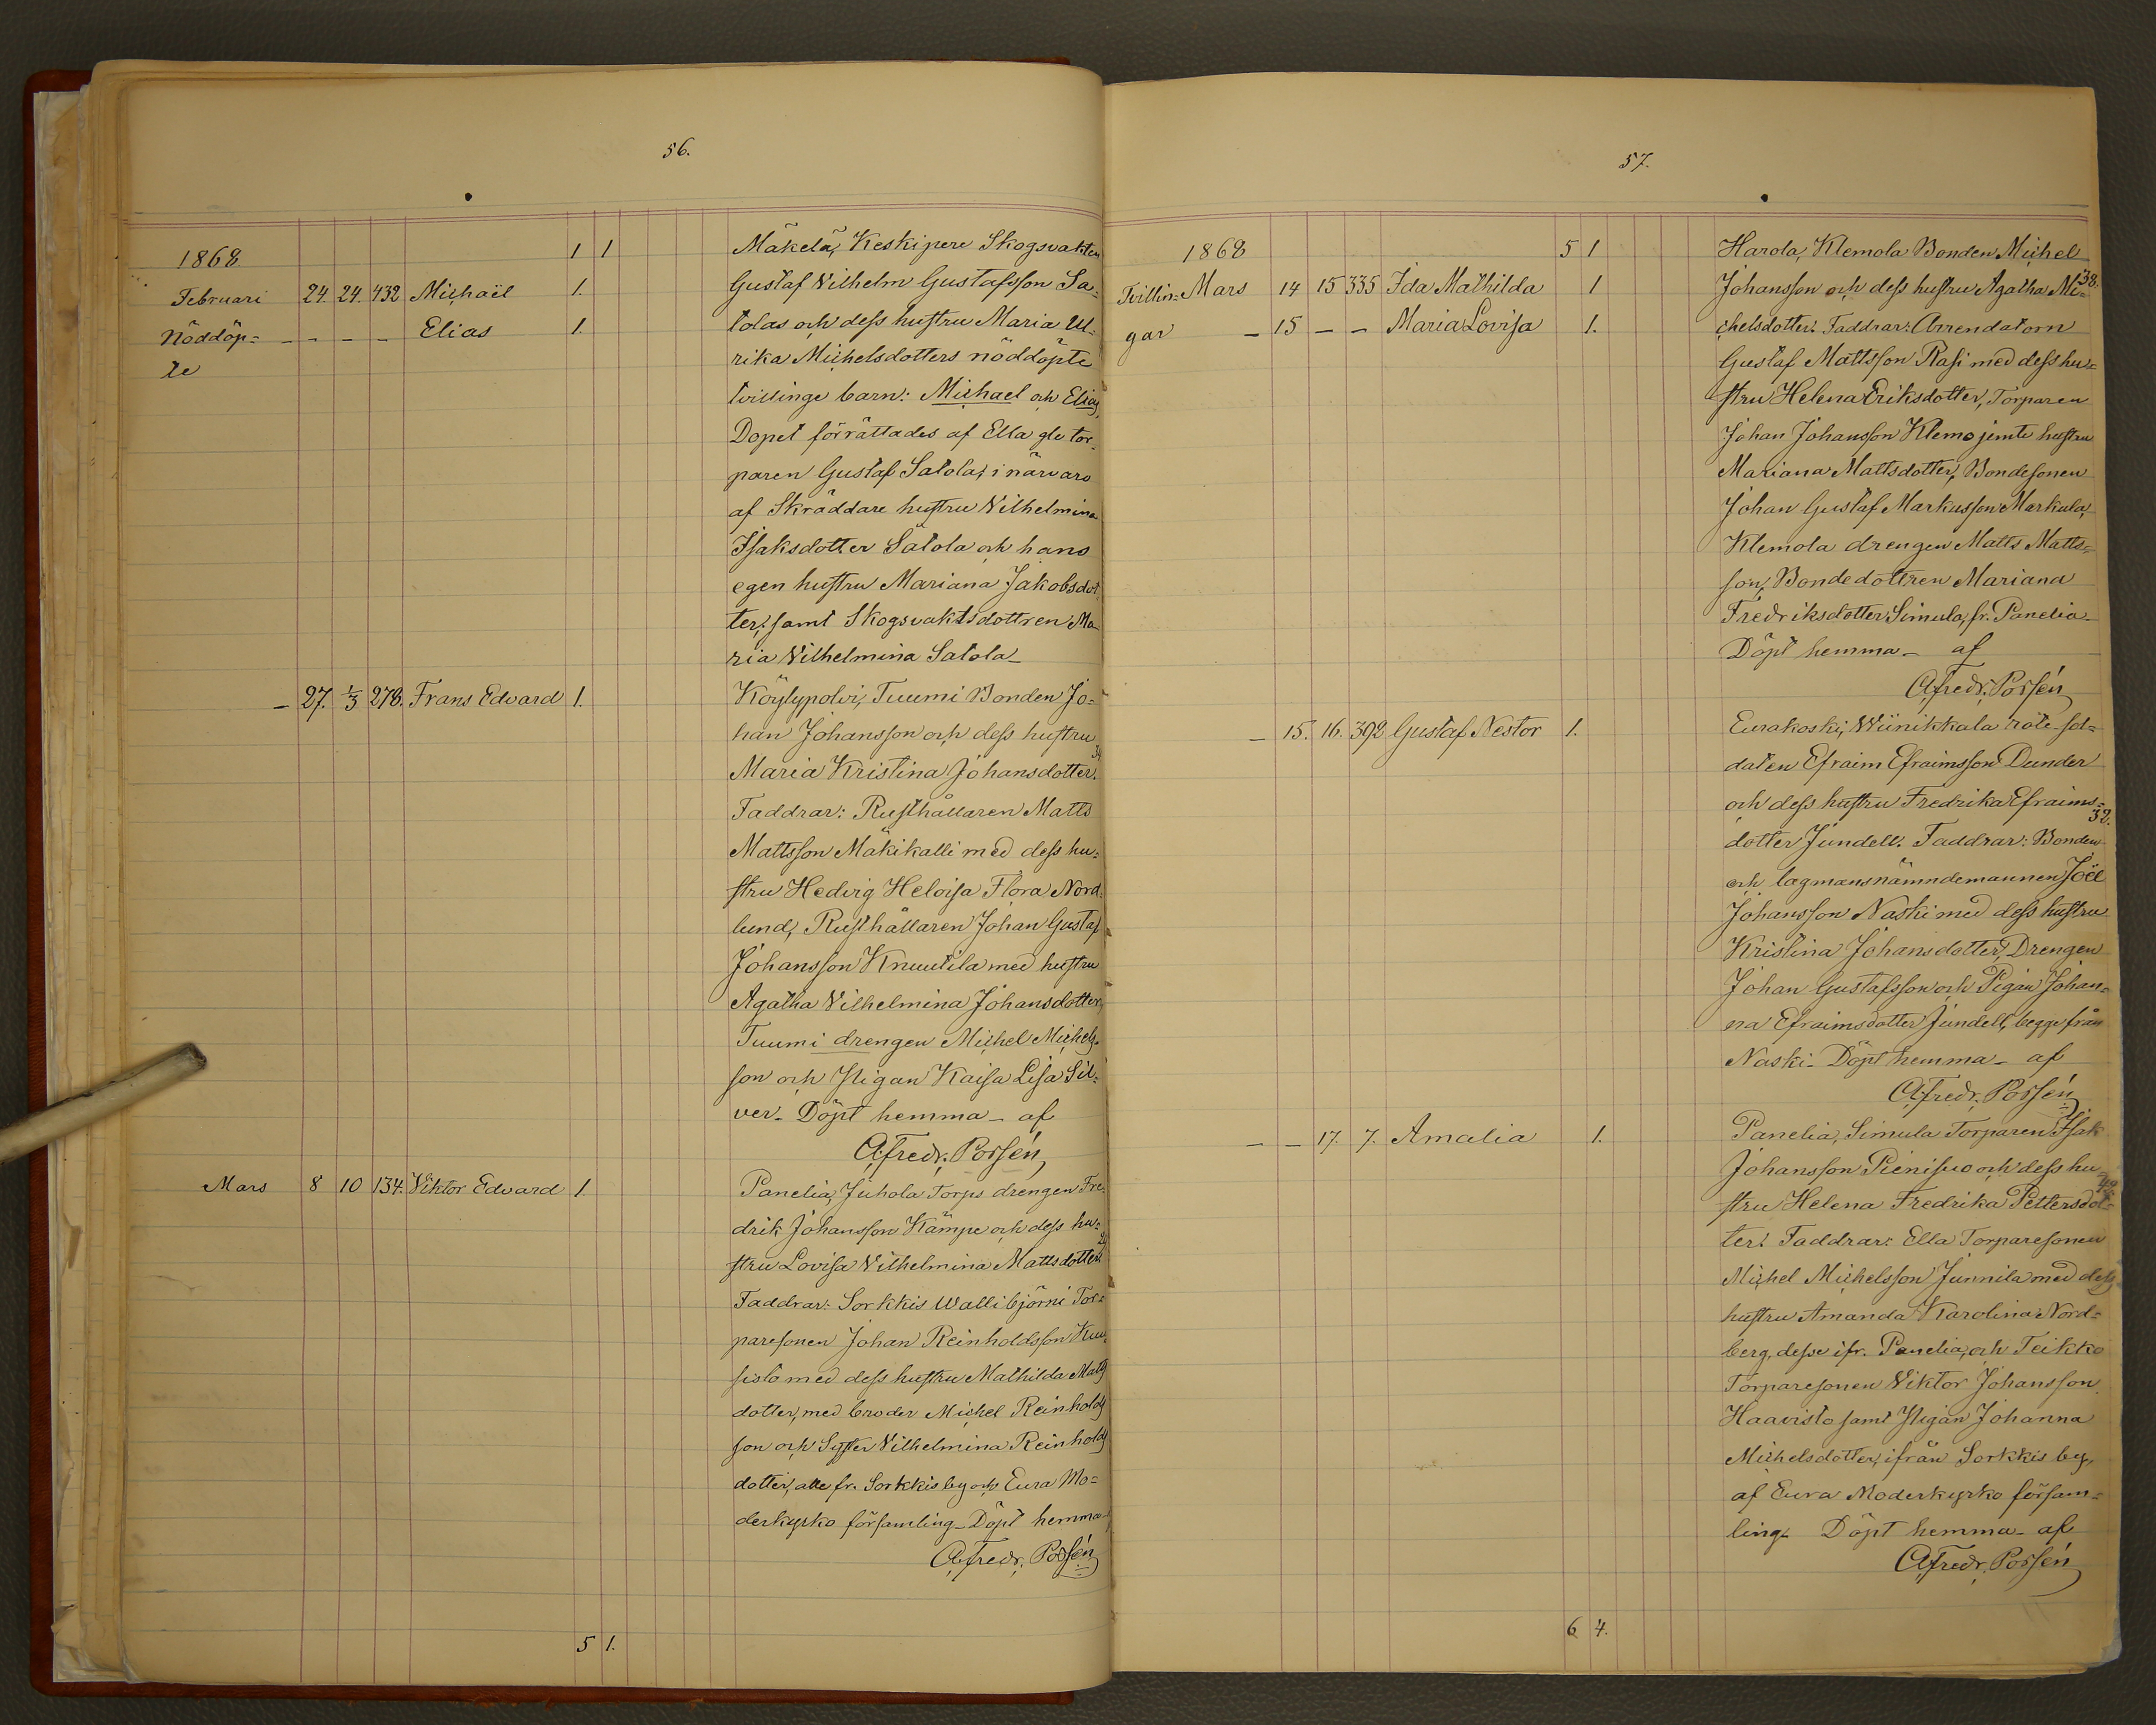 56.
1868 1 1 Mäkelä, Keskipere Skogsvakten
Februari 24. 24. 432 Michaël 1. Gustaf Vilhelm Gustafsson Sa-
Nöddöp= - - - - Elias 1. tolas och dess hustru Maria Ul-
te rika Michelsdotters nöddöpte
tvillinge barn: Michael och Elias,
Dopet förrättades af Ella gle tor-
paren Gustaf Satola, i närvaro
af Skräddare hustru Vilhelmina
Isaksdotter Satola och hans
egen hustru Mariana Jakobsdot
ter, samt Skogsvaktsdottren Ma-
ria Vilhelmina Satola_
- 27. 1/3 278. Frans Edvard 1. Köylypolvi, Tuumi Bonden Jo=
han Johansson och dess hustru
Maria Kristina Johansdotter. 34
Faddrar: Rusthållaren Matts
Mattsson Mäkikalli med dess hu=
stru Hedvig Heloisa Flora Nord-
lund, Rusthållaren Johan Gustaf
Johansson Knuutila med hustru
Agatha Vilhelmina Johansdotter,
Tuumi drengen Michel Michels-
son och Pigan Kaisa Lisa Sil=
ver_ Döpt hemma_ af
A. Fredr. Possén
Mars 8 10 134. Viktor Edvard 1. Panelia, Juhola Torps drengen Fre-
drik Johansson Kämpe och dess hu=
stru Lovisa Vilhelmina Mattsdotter.
Faddrar: Sorkkis Wallibjörni Tor=
paresonen Johan Reinholdsson Kuu-
sisto med dess hustru Mathilda Matts
dotter, med broder Michel Reinholds
son och Syster Vilhelmina Reinholds
dotter, alle fr. Sorkkis by och Eura Mo=
derkyrko församling_ Döpt hemma af
A. Fredr. Possén
5 1.
57.
1868 5 1 Harola, Klemola Bonden Michel
Tvillin= Mars 14 15 335 Ida Mathilda 1 Johansson och dess hustru Agatha Mi= 38.
gar - 15 - - Maria Lovisa 1. chelsdotter. Faddrar: Arrendatorn
Gustaf Mattsson Rasi med dess hu=
stru Helena Eriksdotter, Torparen
Johan Johansson Klemo jemte hustru
Mariana Mattsdotter, Bondesonen
Johan Gustaf Markusson Markula,
Klemola drengen Matts Matts=
son, Bondedottren Mariana
Fredriksdotter Simula, fr. Panelia_
Döpt hemma_ af
A. Fredr. Possén
- 15. 16. 392 Gustaf Nestor 1. Eurakoski, Wiinikkala rote sol=
daten Efraim Efraimsson Dunder
och dess hustru Fredrika Efraims= 32.
dotter Jundell. Faddrar: Bonden
och lagmansnämndemannen Joël
Johansson Naski med dess hustru
Kristina Johansdotter, Drengen
Johan Gustafsson och Pigan Johan=
na Efraimsdotter Jundell, begge från
Naski_ Döpt hemma_ af
A. Fredr. Possén
- - 17. 7. Amalia 1. Panelia, Simula Torparen Isak
Johansson Pienisuo och dess hu=
stru Helena Fredrika Pettersdot=
ter. Faddrar: Ella Torparesonen
Michel Michelsson Junnila med dess
hustru Amanda Karolina Nord=
berg, desse ifr. Panelia, och Teikko
Torparesonen Viktor Johansson
Haavisto samt Pigan Johanna
Michelsdotter, ifrån Sorkkis by,
af Eura Moderkyrko försam=
ling_ Döpt hemma_ af
A. Fredr. Possén
6 4.